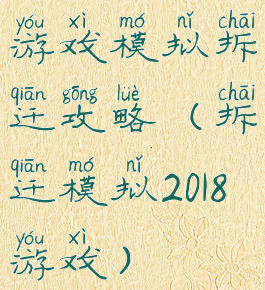 yóu xì mó nǐ chāi
游戏模拟拆
qiān gōng lüè chāi
迁攻略（拆
qiān mó nǐ
迁模拟2018
yóu xì
游戏）